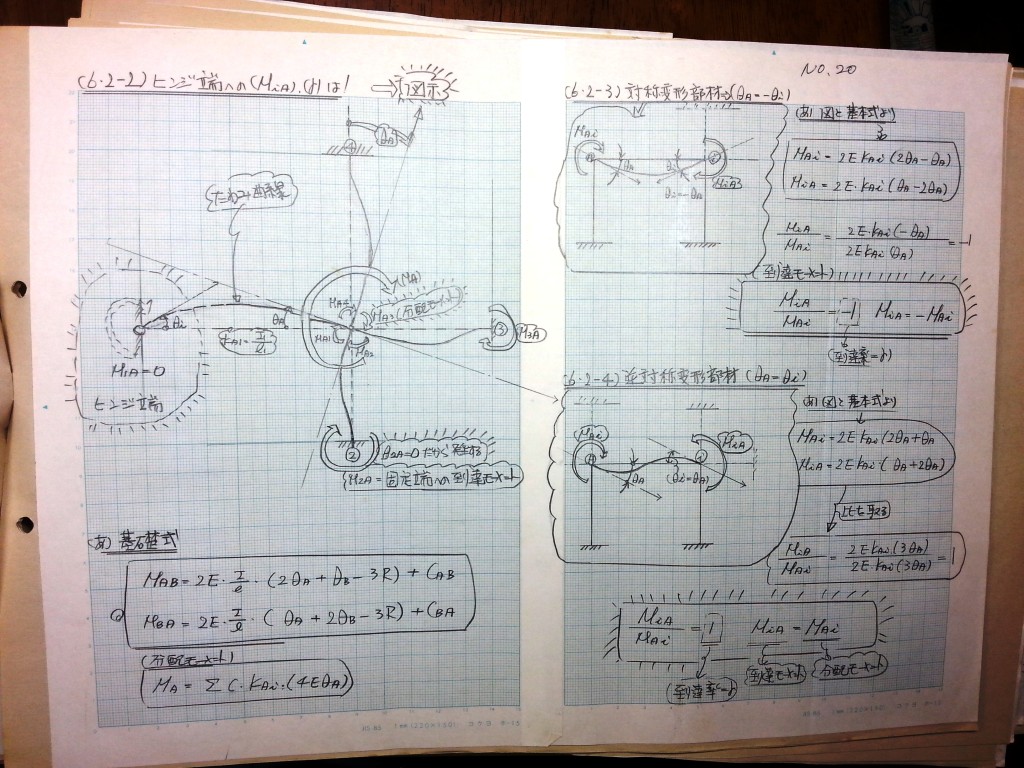 NO. 20
(6・2-2) ヒンジ端への(MiA), (γ)は!
⇒ 図示
θA
たわみ曲線
(MA)
分配モーメント
θi
θA
M1A=0
ヒンジ端
MA1
MA2
③
M3A
②
θ2A=0だから
M2A=固定端への到達モーメント
あ) 基礎式
MAB = 2E・I/l・(2θA + θB - 3R) + CAB
MBA = 2E・I/l・(θA + 2θB - 3R) + CBA
(分配モーメント)
MA = Σ(・KAi・(4EθA)
(6・2-3) 対称変形部材→(θA=-θi)
MAi
θA
θi=-θA
MiA
あ) 図と基本式より
MAi = 2E KAi (2θA - θA)
MiA = 2E・KAi (θA - 2θA)
MiA/MAi = 2E・KAi(-θA)/2E KAi(θA) = -1
(到達モーメント)
MiA/MAi = -1 MiA = -MAi
(到達率=γ)
(6・2-4) 逆対称変形部材 (θA=θi)
MAi
MiA
θA
(θi=θA)
あ) 図と基本式より
MAi = 2E KAi (2θA + θA
MiA = 2E KAi (θA + 2θA)
比を取る
MiA/MAi = 2E KAi(3θA)/2E・KAi(3θA) = 1
MiA/MAi = 1 MiA = MAi
(到達率=γ)
到達モーメント
分配モーメント